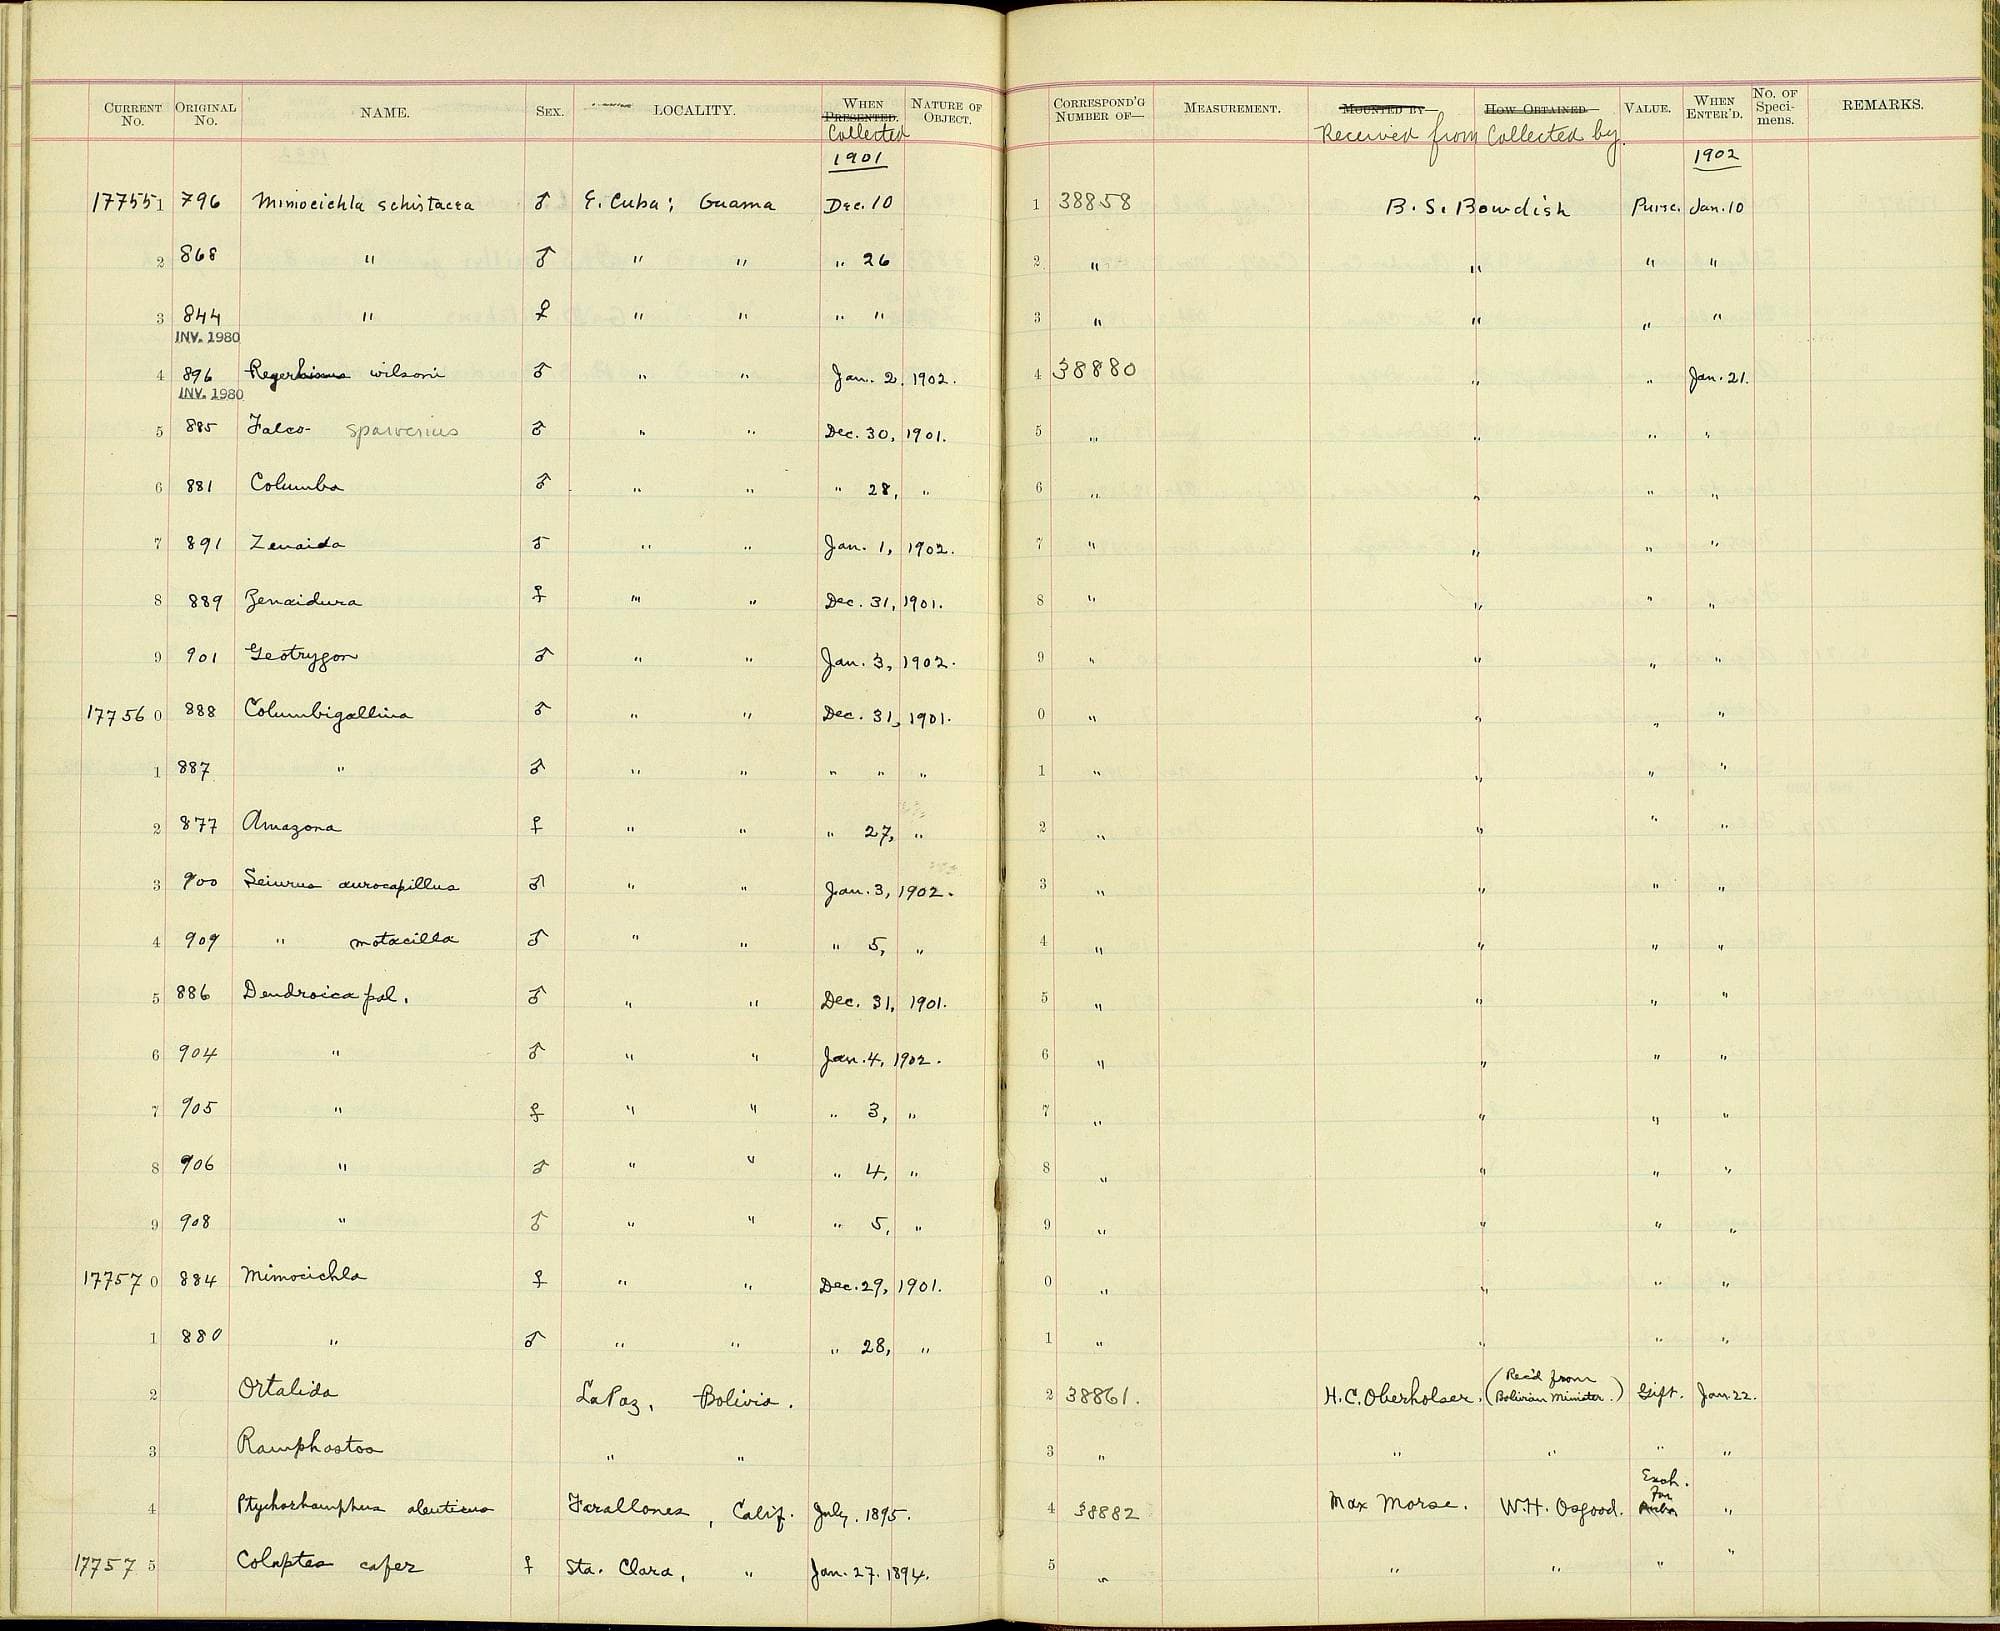 CURRENT No. ORIGINAL No. NAME. SEX. LOCALITY. WHEN PRESENTED. Collected NATURE OF OBJECT. CORRESPOND'G NUMBER OF— MEASUREMENT. MOUNTED BY Received from HOW OBTAINED Collected by VALUE. WHEN ENTER'D. No. OF Speci-mens. REMARKS.
1901 1902
17755 1 796 Mimocichla schistacea ♂ E. Cuba; Guama Dec. 10 1 38858 B. S. Bowdish Purc. Jan. 10
2 868 " ♂ " " " 26 2 " " " "
3 844 " ♀ " " " " 3 " " " "
INV. 1980
4 896 wilsoni ♂ " " Jan. 2, 1902. 4 38880 " " Jan. 21.
INV. 1980
5 885 Falco- sparverius ♂ " " Dec. 30, 1901. 5 " " " "
6 881 Columba ♂ " " " 28, " 6 " " " "
7 891 Zenaida ♂ " " Jan. 1, 1902. 7 " " " "
8 889 Zenaidura ♀ " " Dec. 31, 1901. 8 " " " "
9 901 Geotrygon ♂ " " Jan. 3, 1902. 9 " " " "
17756 0 888 Columbigallina ♂ " " Dec. 31, 1901. 0 " " " "
1 887 " ♂ " " " " " 1 " " " "
2 877 Amazona ♀ " " " 27, " 2 " " " "
3 900 Seiurus aurocapillus ♂ " " Jan. 3, 1902. 3 " " " "
4 909 " motacilla ♂ " " " 5, " 4 " " " "
5 886 Dendroica pal. ♂ " " Dec. 31, 1901. 5 " " " "
6 904 " ♂ " " Jan. 4, 1902. 6 " " " "
7 905 " ♀ " " " 3, " 7 " " " "
8 906 " ♂ " " " 4, " 8 " " " "
9 908 " ♂ " " " 5, " 9 " " " "
17757 0 884 Mimocichla ♀ " " Dec. 29, 1901. 0 " " " "
1 880 " ♂ " " " 28, " 1 " " " "
2 Ortalida La Paz, Bolivia. 2 38861. H. C. Oberholser. (Rec'd from Bolivian Minister.) Gift. Jan. 22.
3 Ramphastos " " 3 " " " " "
4 Ptychorhamphus aleuticus Farallones, Calif. July. 1895. 4 38882 Max Morse. W. H. Osgood. Exch. For "
17757 5 Colaptes cafer ♀ Sta. Clara, " Jan. 27. 1894. 5 " " " " "